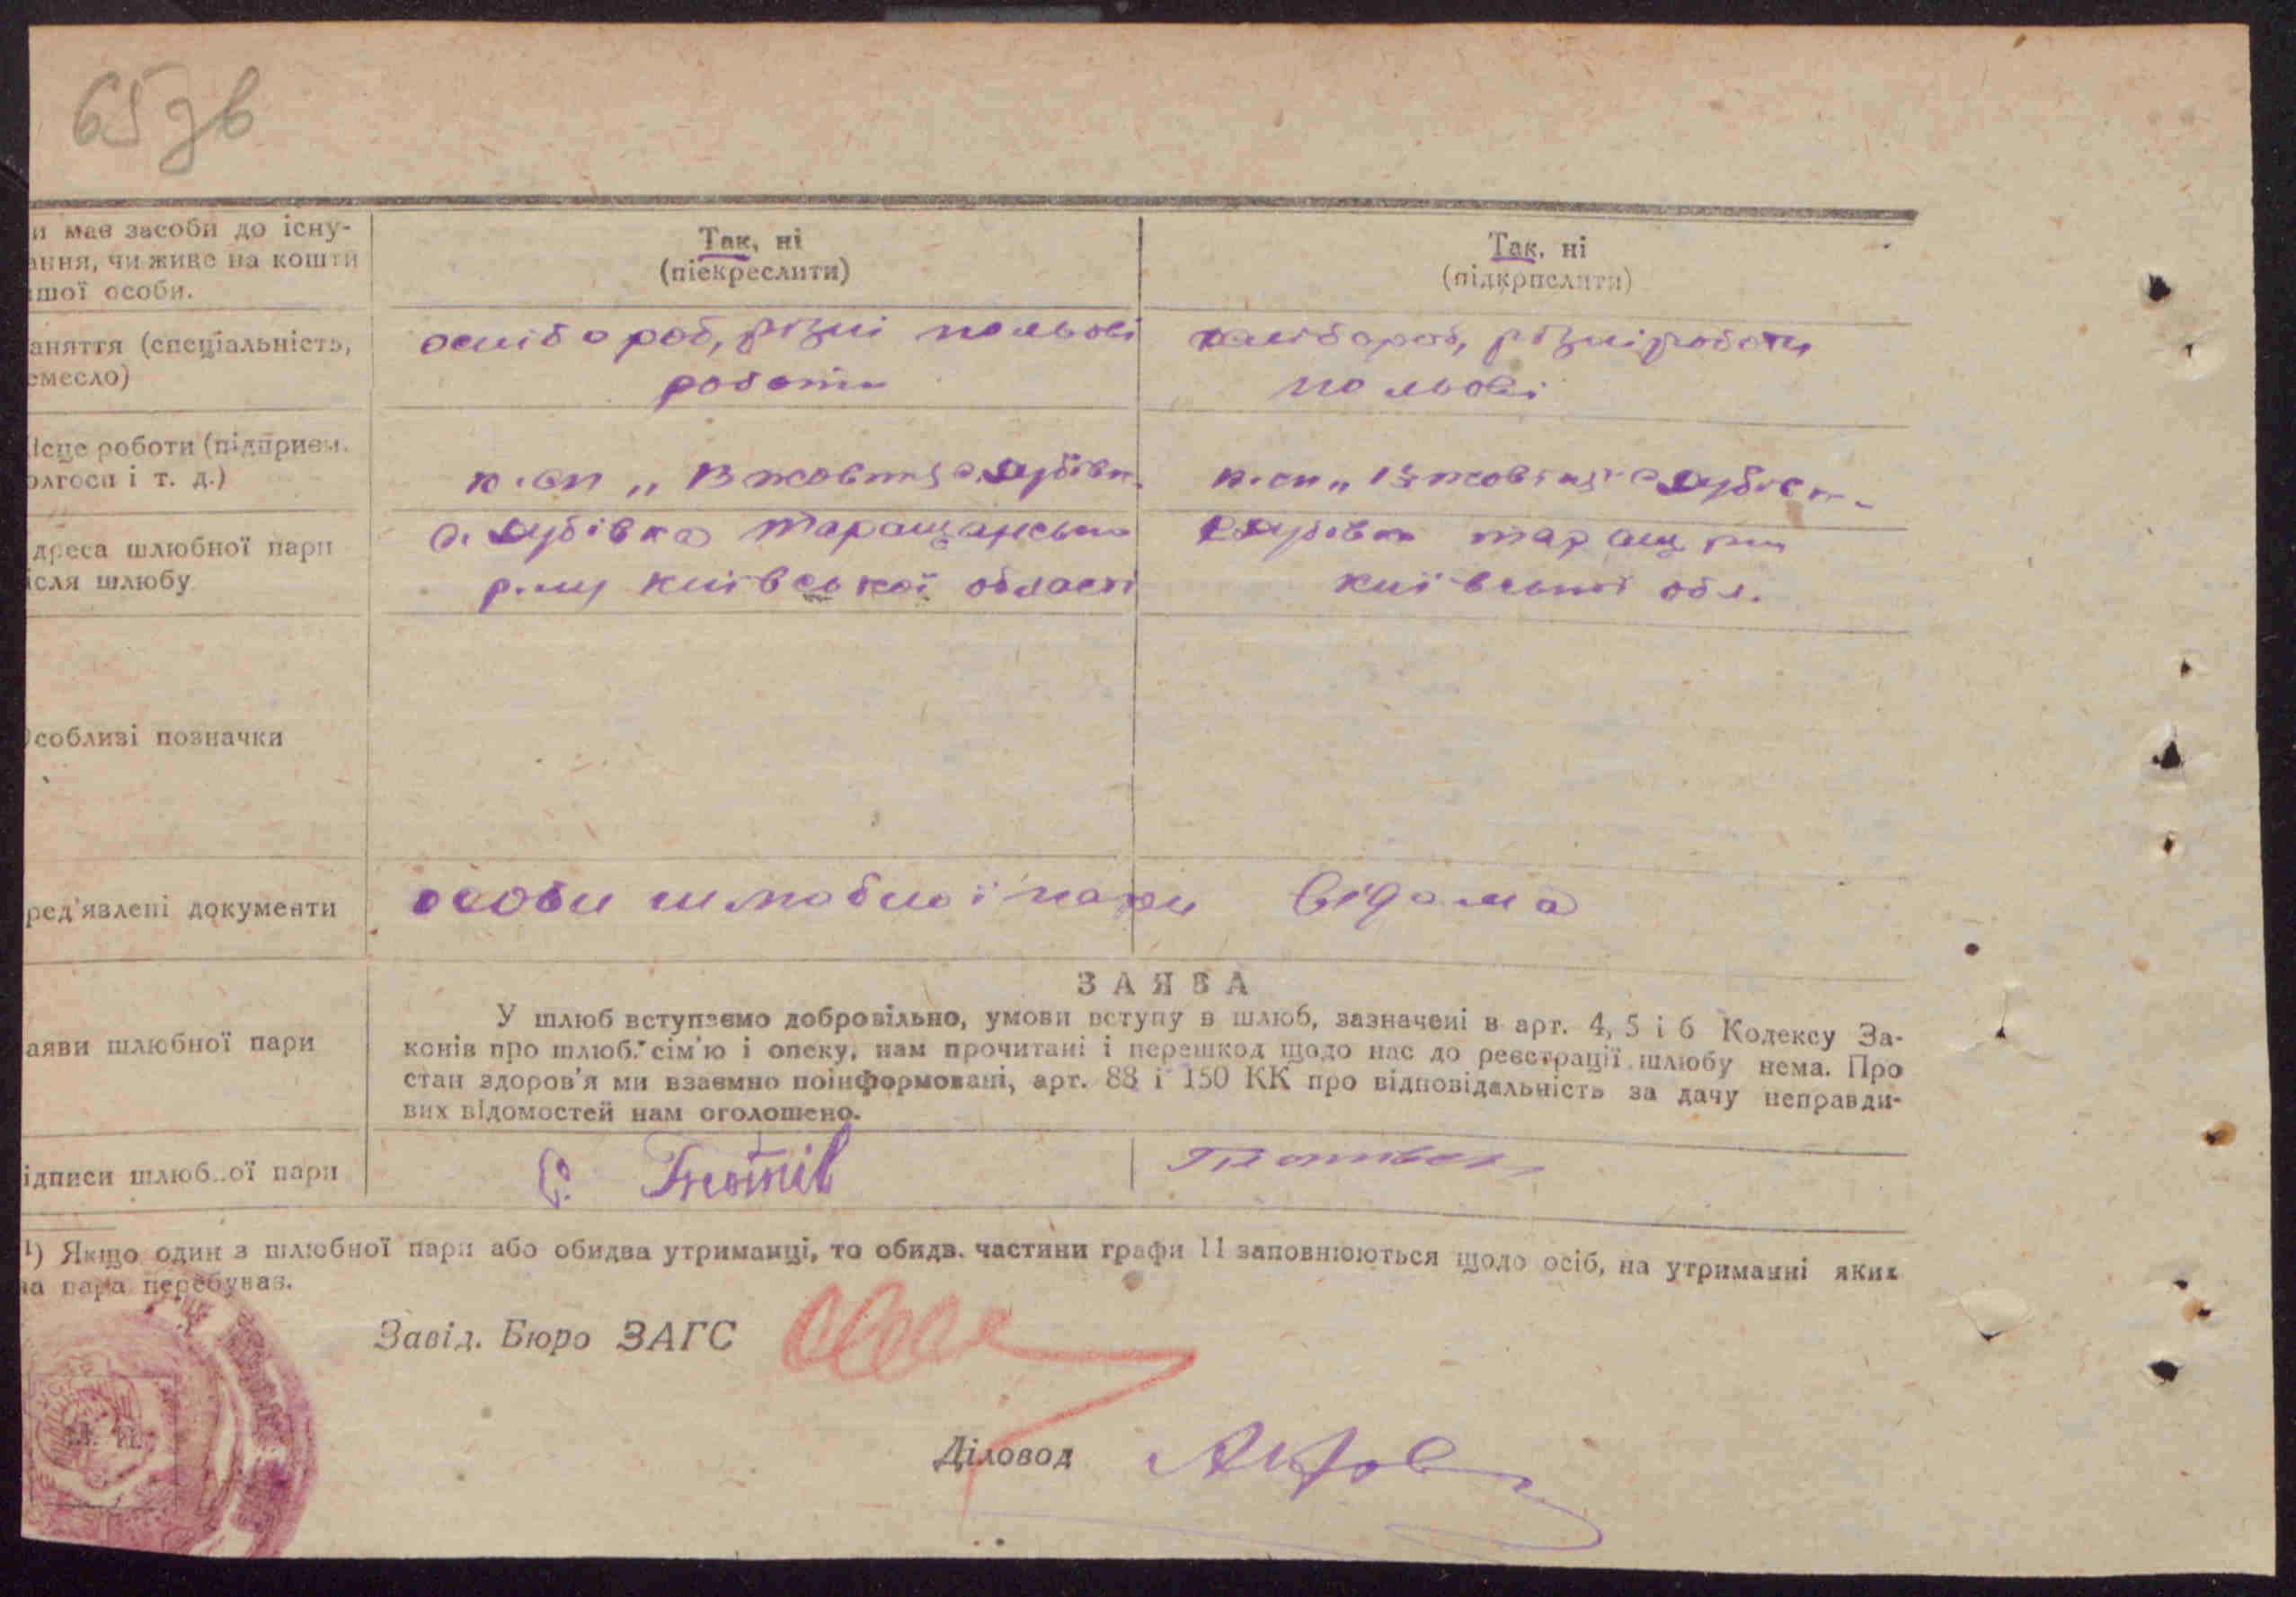 65 зв
и має засоби до існу-
ання, чи живе на кошти
ншої особи.
Так, ні
(піекреслити)
Так, ні
(підкрпслити)
аняття (спеціальність,
емесло)
хлібороб, різні польові
роботи
хлібороб, різні роботи
польові
ісце роботи (підприєм.
олгосп і т. д.)
дреса шлюбної пари
ісля шлюбу
с. Дубівка Таращанського
р-ну Київської області
с. Дубівка Таращ р-ну
Київської обл.
собливі позначки
ред'явлені документи
особи шлюбної пари відома
аяви шлюбної пари
ЗАЯВА
У шлюб вступаємо добровільно, умови вступу в шлюб, зазначені в арт. 4, 5 і 6 Кодексу За-
конів про шлюб, сім'ю і опеку, нам прочитані і перешкод щодо нас до реєстрації шлюбу нема. Про
стан здоров'я ми взаємно поінформовані, арт. 88 і 150 КК про відповідальність за дачу неправди-
вих відомостей нам оголошено.
ідписи шлюб..ої пари
1) Якщо один з шлюбної пари або обидва утриманці, то обидв. частини графи 11 заповнюються щодо осіб, на утриманні яких
на пара перебуває.
Завід. Бюро ЗАГС
Діловод